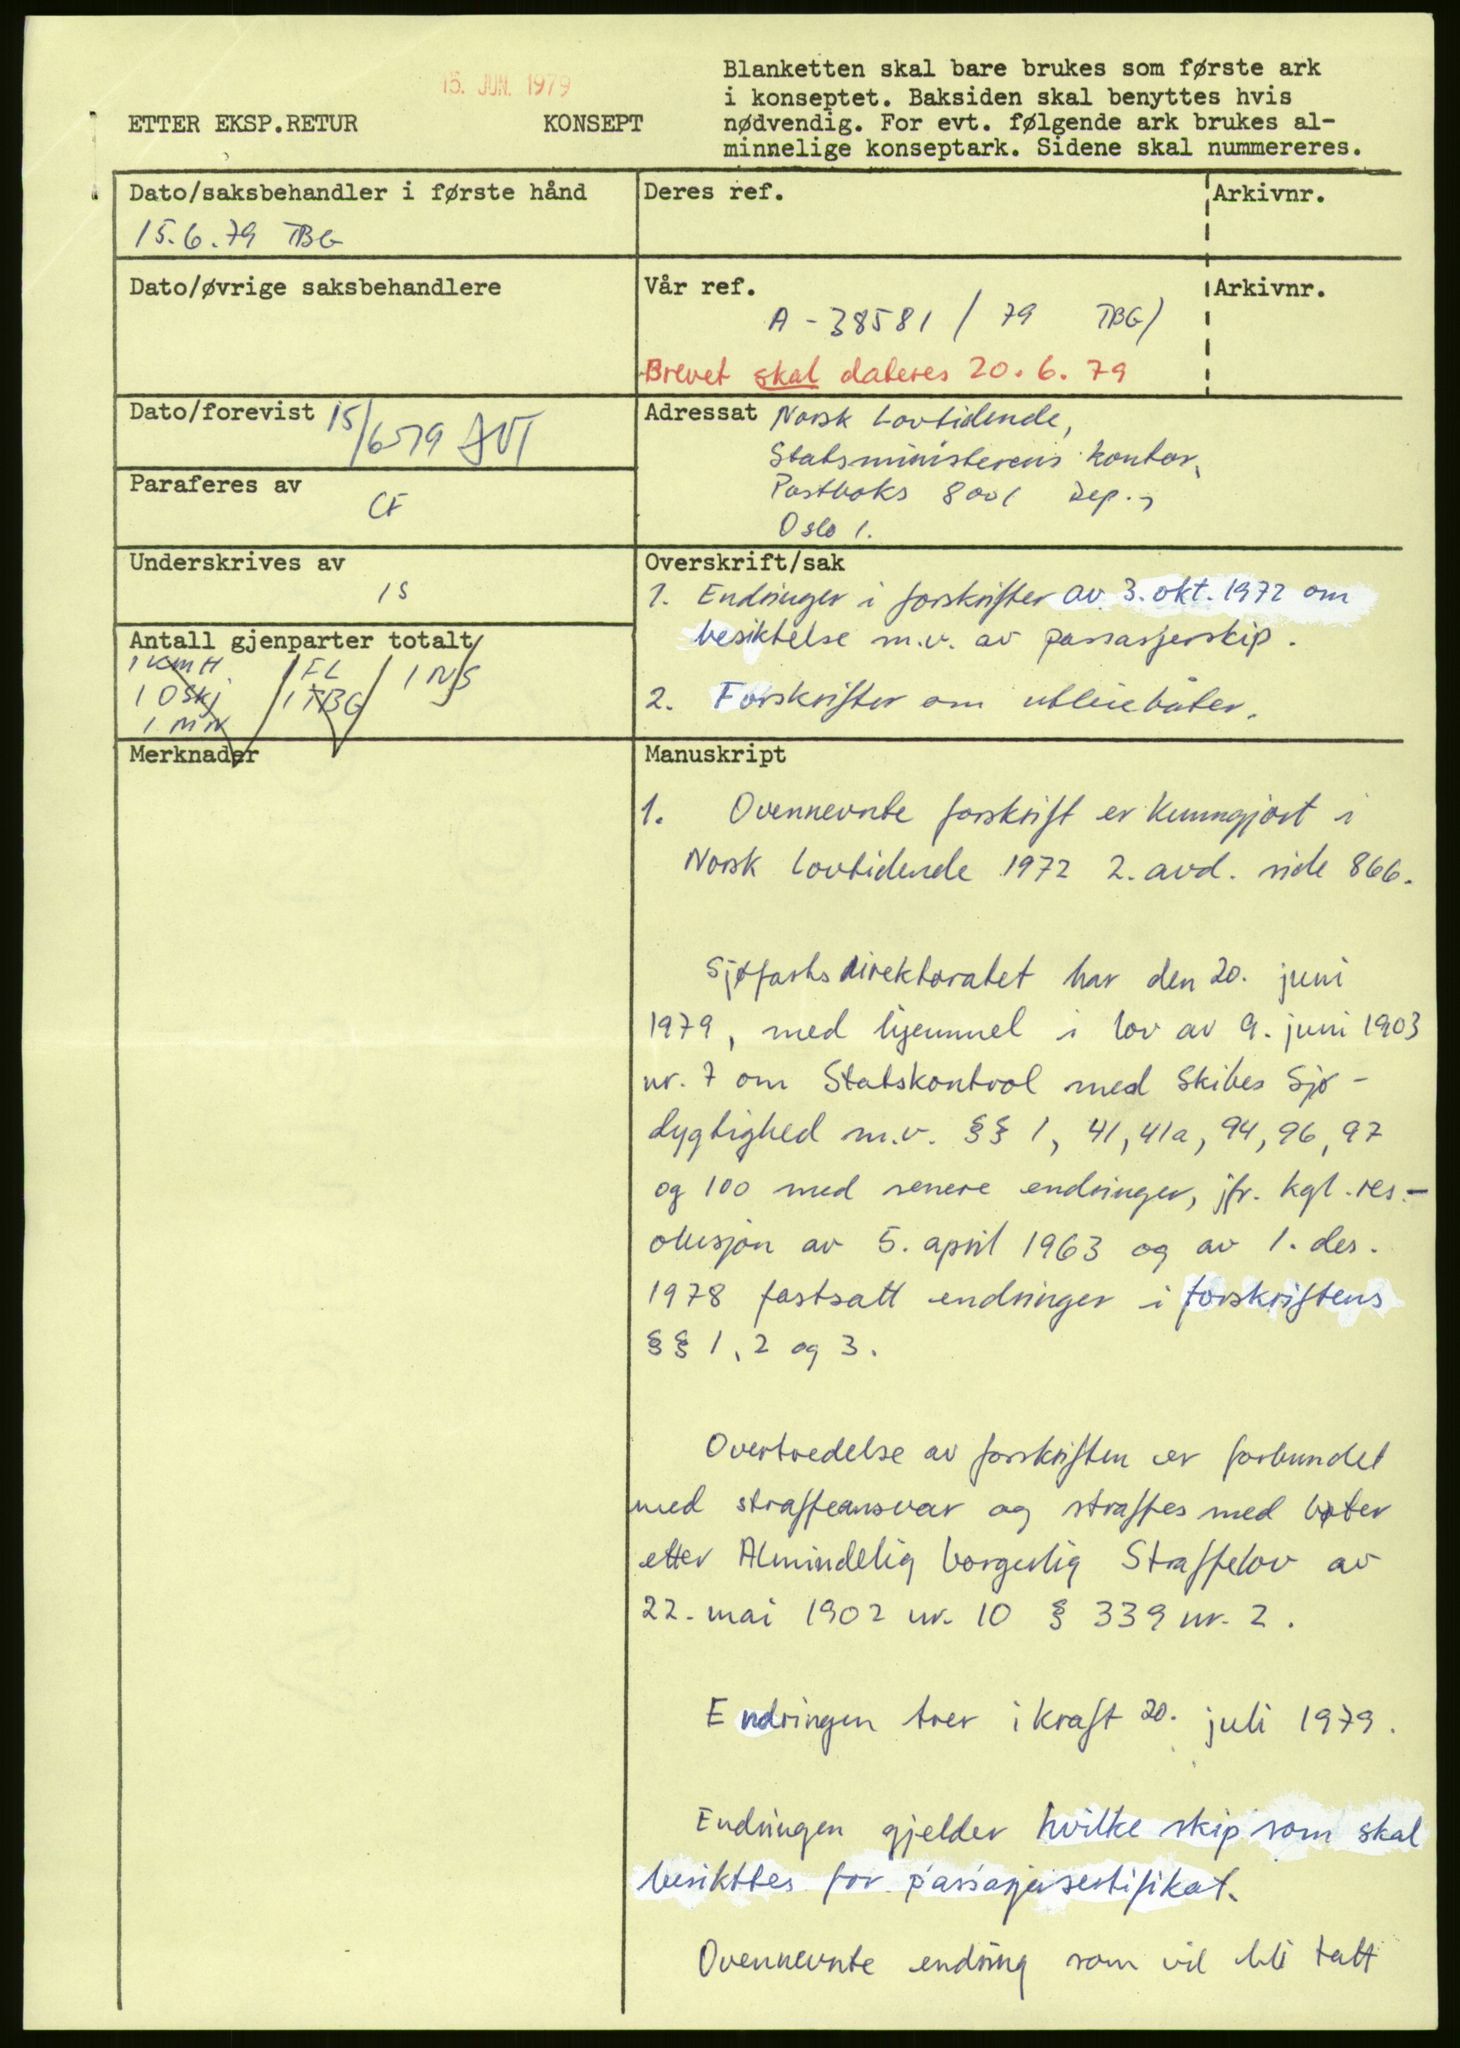 15. JUN. 1979
ETTER EKSP.RETUR
KONSEPT
Blanketten skal bare brukes som første ark
i konseptet. Baksiden skal benyttes hvis
nødvendig. For evt. følgende ark brukes al-
minnelige konseptark. Sidene skal nummereres.
Dato/saksbehandler i første hånd
15.6.79 TBG
Deres ref.
Arkivnr.
Dato/øvrige saksbehandlere
Vår ref.
A - 38581 / 79 TBG)
Brevet skal dateres 20.6.79
Arkivnr.
Dato/forevist 15/6-79
Paraferes av
CF
Underskrives av
IS
Antall gjenparter totalt
1 KMH 1 FL 1 NS
1 OSkj 1 TBG
1 MN
Merknader
Adressat Norsk Lovtidende,
Statsministerens kontor,
Postboks 8001 Dep.,
Oslo 1.
Overskrift/sak
1. Endringer i forskrifter av 3. okt. 1972 om
besiktelse m.v. av passasjerskip.
2. Forskrifter om utleiebåter.
Manuskript
1. Ovennevnte forskrift er kunngjort i
Norsk Lovtidende 1972 2. avd. side 866.
Sjøfartsdirektoratet har den 20. juni
1979, med hjemmel i lov av 9. juni 1903
nr. 7 om Statskontrol med Skibes Sjø-
dygtighed m.v. §§ 1, 41, 41a, 94, 96, 97
og 100 med senere endringer, jfr. kgl. res.-
olusjon av 5. april 1963 og av 1. des.
1978 fastsatt endringer i forskriftens
§§ 1, 2 og 3.
Overtredelse av forskriften er forbundet
med straffeansvar og straffes med bøter
etter Almindelig borgerlig Straffelov av
22. mai 1902 nr. 10 § 339 nr. 2.
Endringen trer i kraft 20. juli 1979.
Endringen gjelder hvilke skip som skal
besiktes for passasjersertifikat.
Ovennevnte endring som vil bli tatt